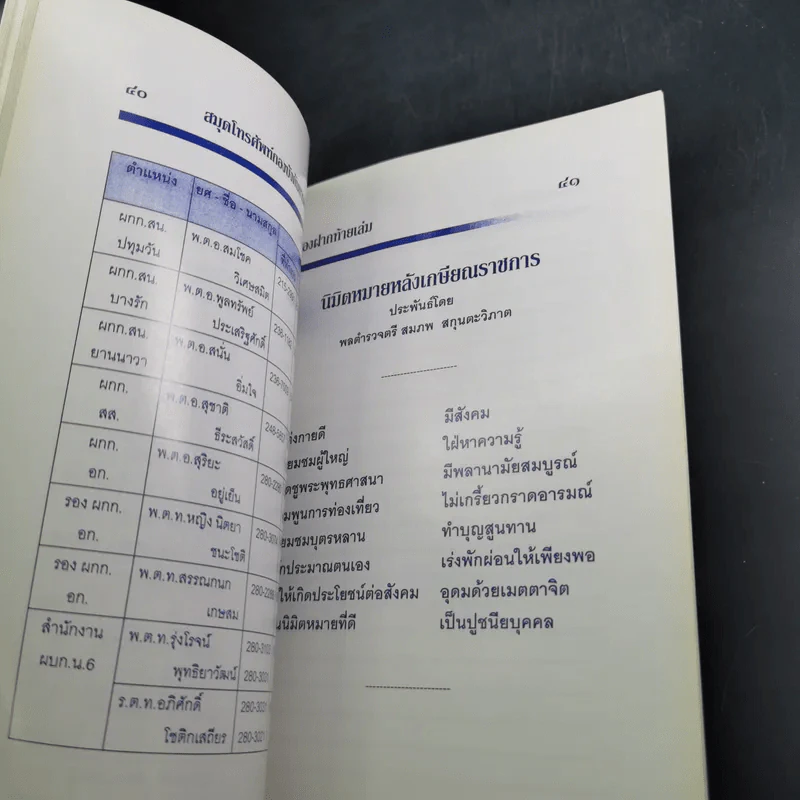 ๔๐
สมุดโทรศัพท์กองบังคับ
ตำแหน่ง ยศ - ชื่อ - นามสกุล
ผกก.สน. พ.ต.อ.สมโชค
ปทุมวัน วิเศษสมิต
ผกก.สน. พ.ต.อ.พูลทรัพย์
บางรัก ประเสริฐศักดิ์
ผกก.สน. พ.ต.อ.สนั่น
ยานนาวา อิ่มใจ
ผกก. พ.ต.อ.สุชาติ
สส. ธีระสวัสดิ์
ผกก. พ.ต.อ.สุริยะ
อก. อยู่เย็น
รอง ผกก. พ.ต.ท.หญิง นิตยา
อก. ชนะโชติ
รอง ผกก. พ.ต.ท.สรรณกนก
อก. เกษสม
สำนักงาน พ.ต.ท.รุ่งโรจน์
ผบก.น.6 พุทธิยาวัฒน์ 280-3021
ร.ต.ท.อภิศักดิ์ 280-3021
โชติกเสถียร 280-3021
๔๑
องฝากท้ายเล่ม
นิมิตหมายหลังเกษียณราชการ
ประพันธ์โดย
พลตำรวจตรี สมภพ สกุนตะวิภาต
งกายดี มีสังคม
ยมชมผู้ใหญ่ ใฝ่หาความรู้
ดชูพระพุทธศาสนา มีพลานามัยสมบูรณ์
มพูนการท่องเที่ยว ไม่เกรี้ยวกราดอารมณ์
ยมชมบุตรหลาน ทำบุญสูนทาน
ักประมาณตนเอง เร่งพักผ่อนให้เพียงพอ
ให้เกิดประโยชน์ต่อสังคม อุดมด้วยเมตตาจิต
นนิมิตหมายที่ดี เป็นปูชนียบุคคล